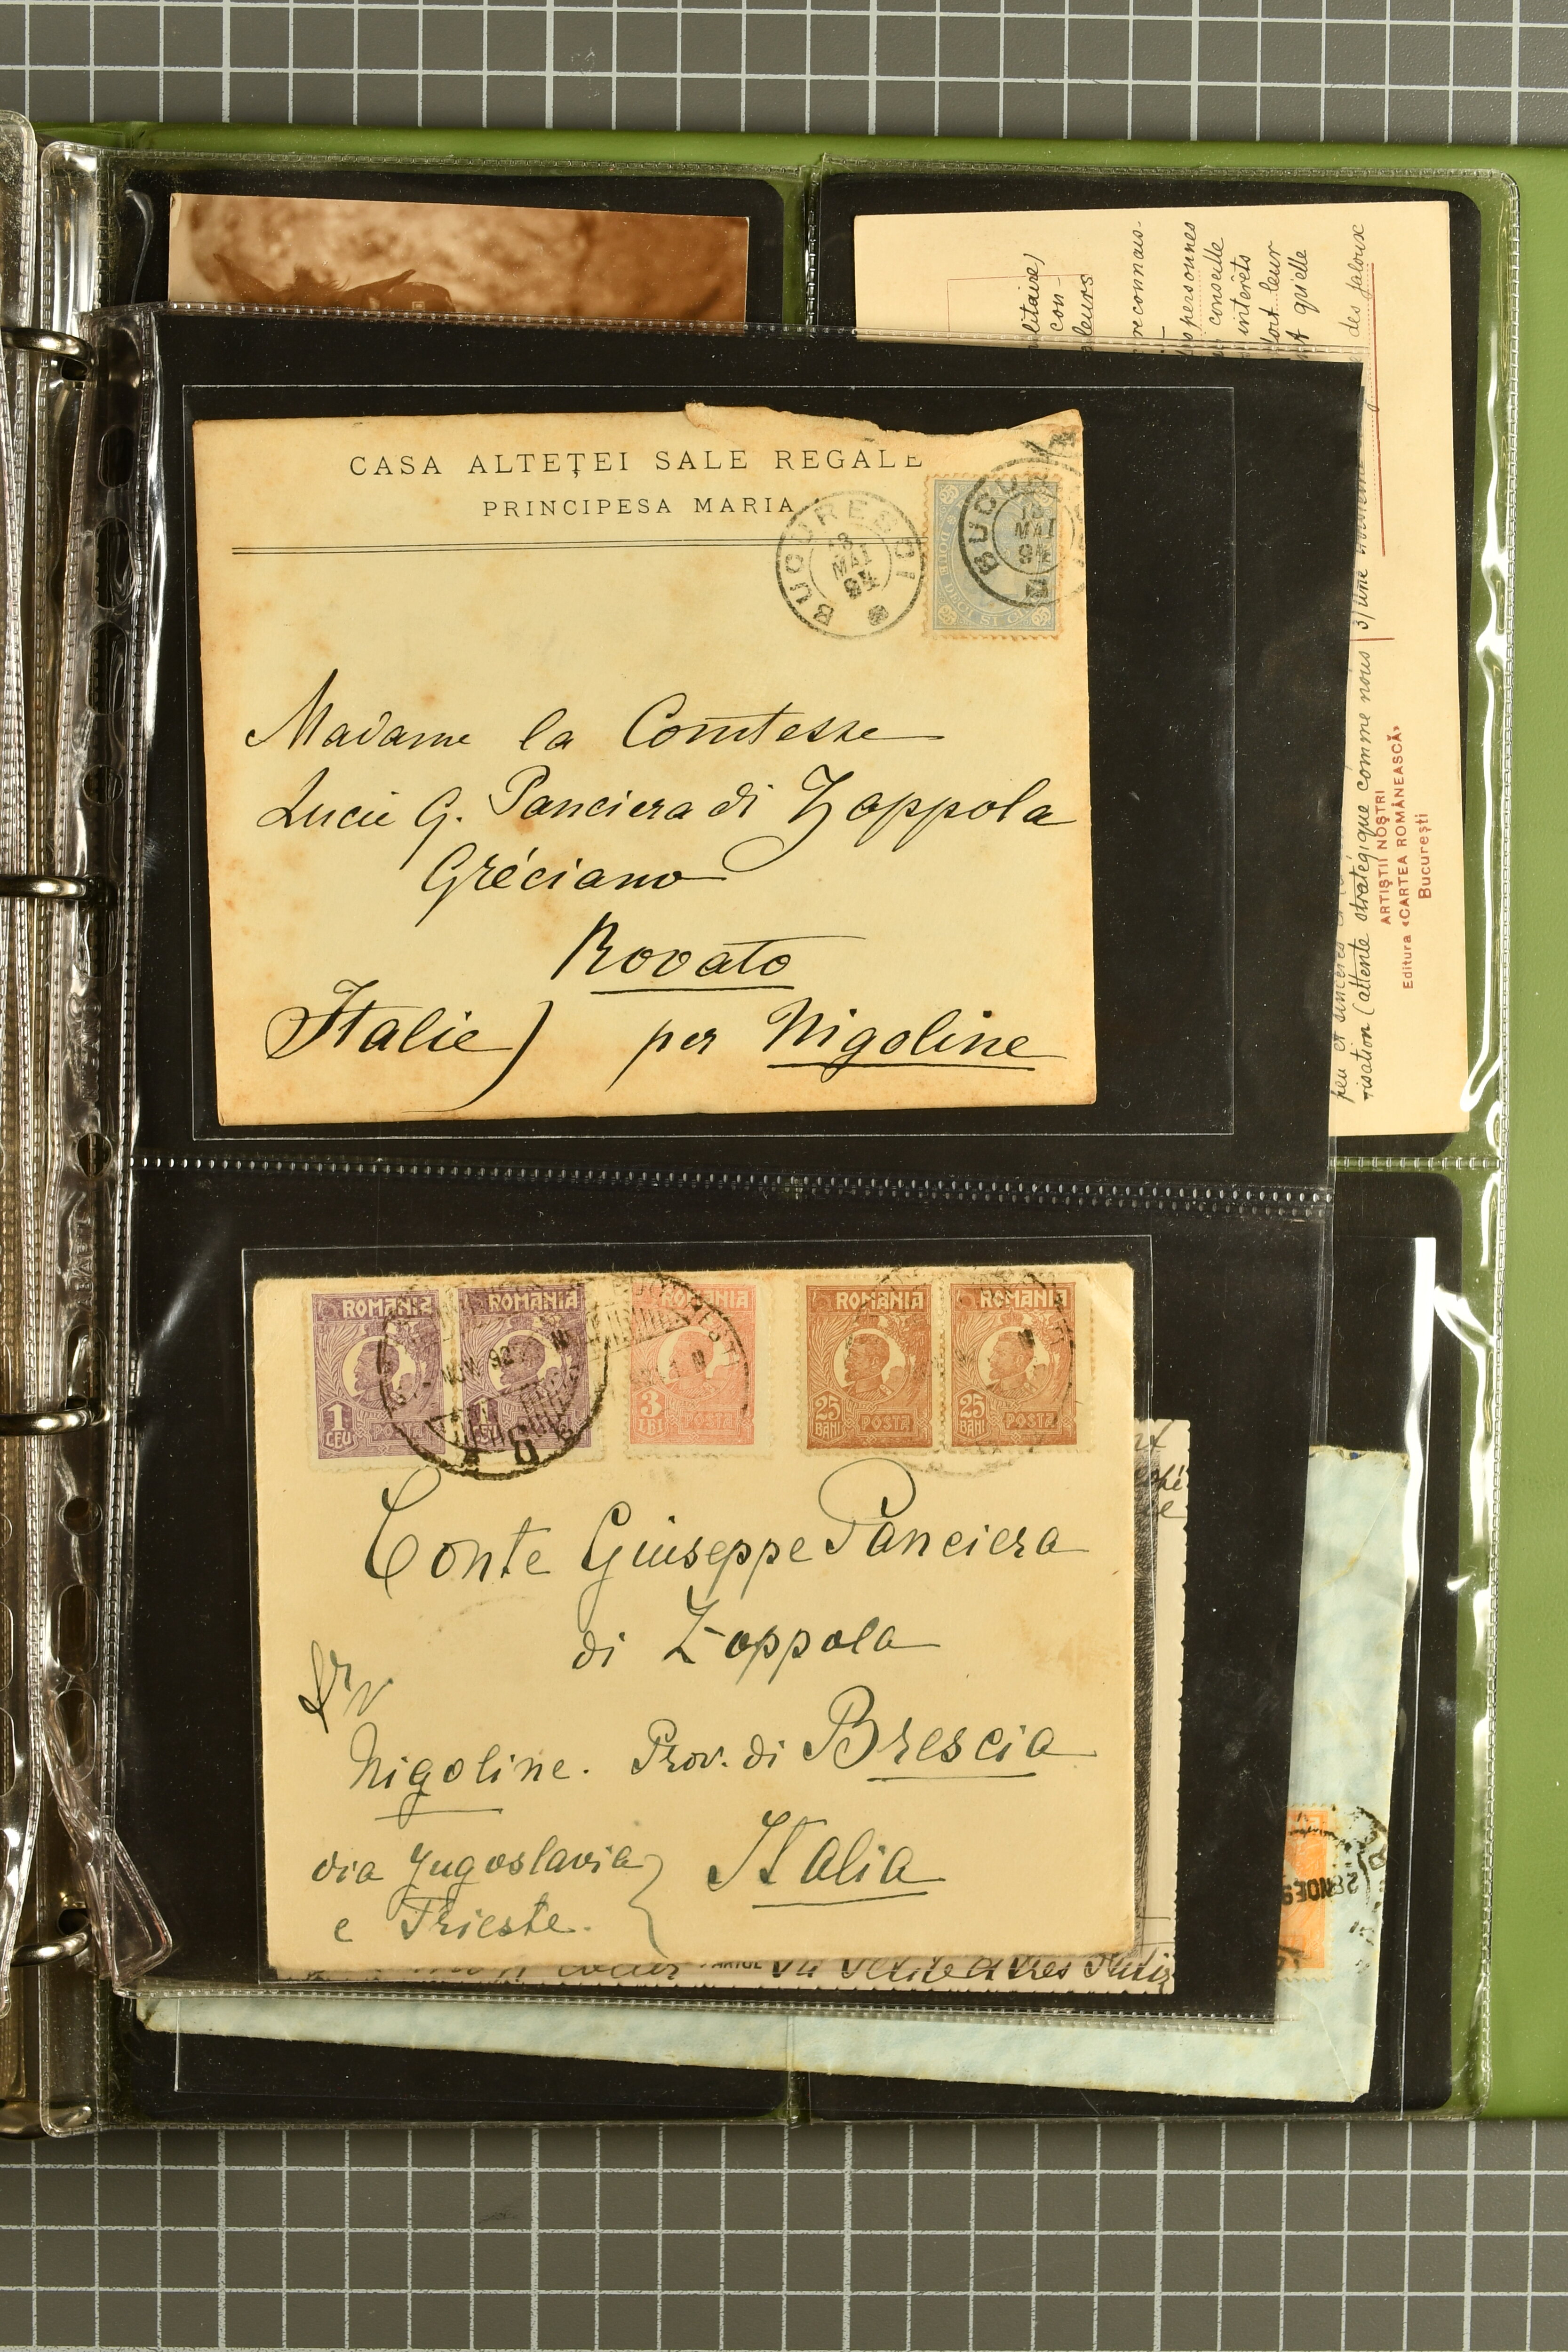 CASA ALTEȚEI SALE REGALE
PRINCIPESA MARIA
BUCURESCI
13
MAI
94
BUCUR
13
MAI
94
Madame la Comtesse
Lucie G. Panciera di Zoppola
Gréciano
Rovato
Italie) per Nigoline
ROMANIA
1
LEU
POSTA
ROMANIA
1
ROMANIA
3
LEI
POSTA
ROMANIA
25
BANI
POSTA
ROMANIA
25
BANI
POSTA
NOV. 92
Conte Giuseppe Panciera
di Zoppola
Nigoline. Prov. di Brescia
via Jugoslavia
e Trieste.
Italia
litaire)
con-
leurs
reconnais-
personnes
conseille
interêts
dort leur
qu'elle
des jaloux
3) une
peu et sincères
risation (attente stratégique comme nous
ARTIȘTII NOȘTRI
Editura «CARTEA ROMÂNEASCĂ»
București